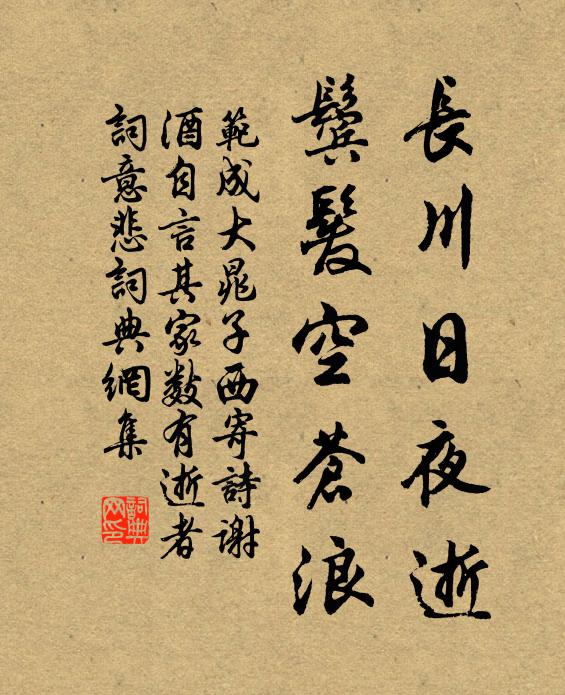 長川日夜逝
鬢髮空蒼浪
範成大晁子西寄詩謝
酒自言其家數有逝者
詞意悲詞典網集
詞典
网印